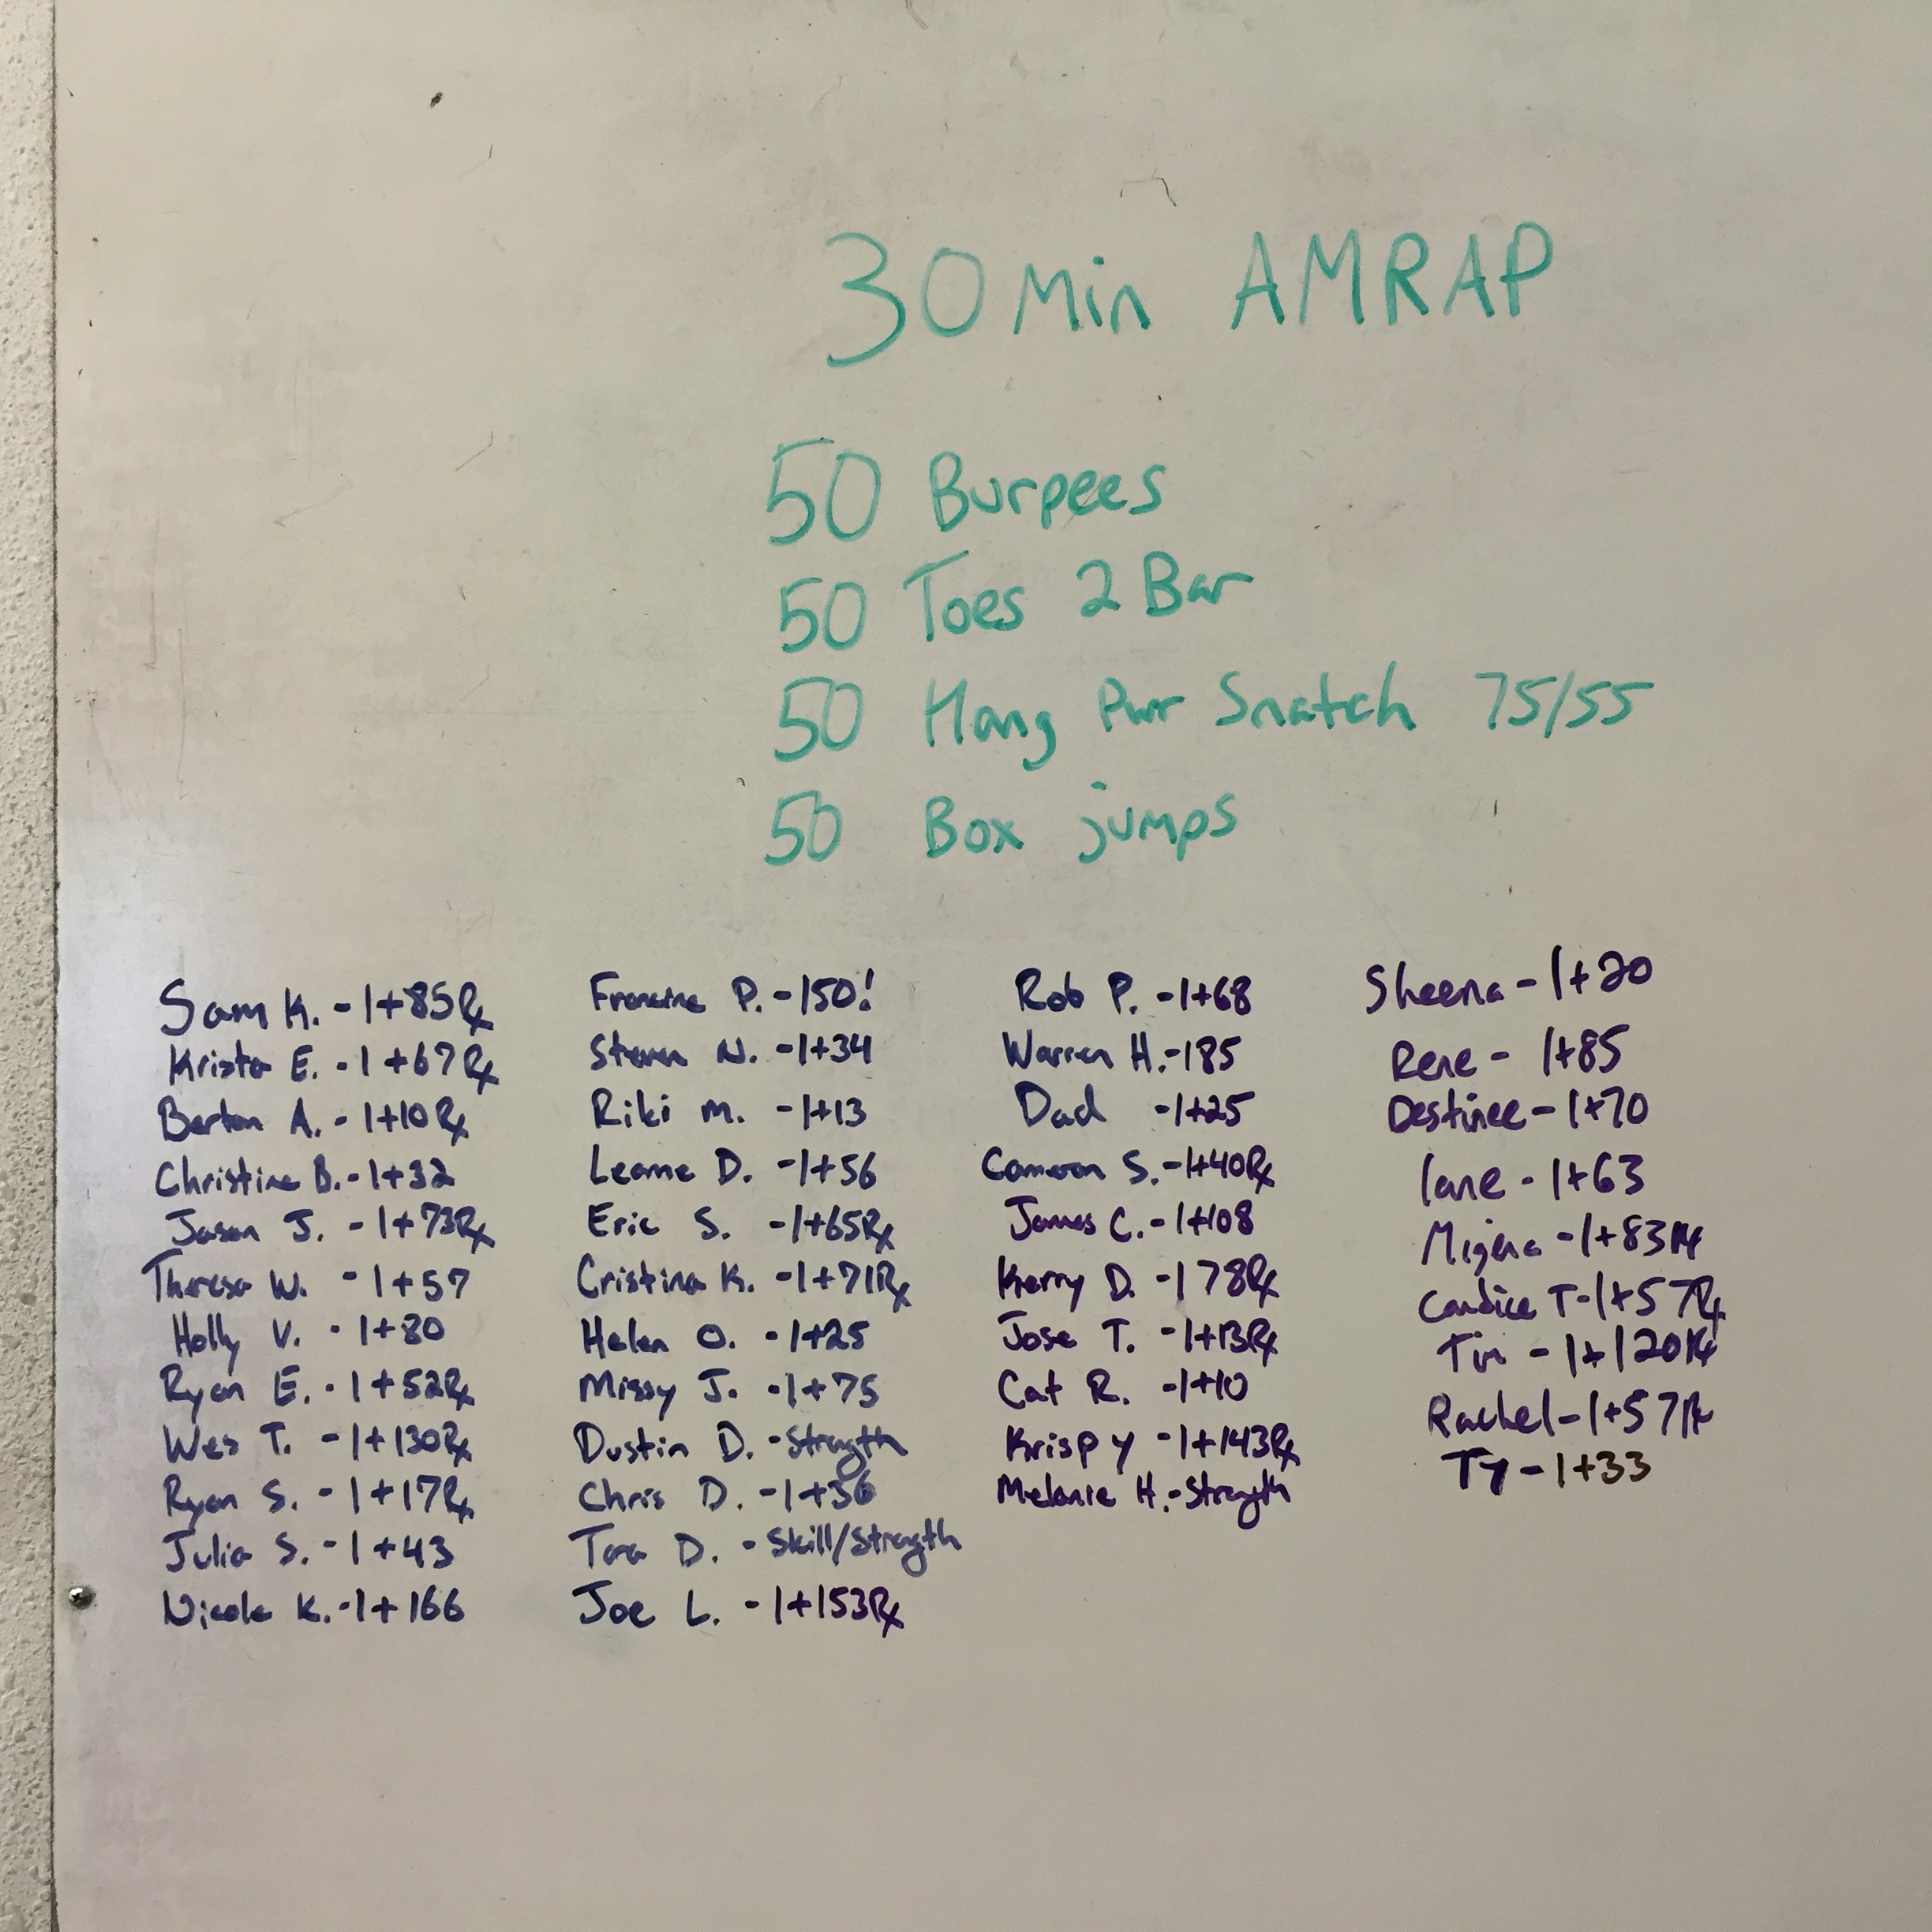 30 Min AMRAP
50 Burpees
50 Toes 2 Bar
50 Hang Pwr Snatch 75/55
50 Box jumps
Sam K. - 1+85Rx
Krista E. - 1+67Rx
Barton A. - 1+10Rx
Christine B. - 1+32
Jason J. - 1+73Rx
Theresa W. - 1+57
Holly V. - 1+80
Ryan E. - 1+52Rx
Wes T. - 1+130Rx
Ryan S. - 1+17Rx
Julia S. - 1+43
Nicole K. - 1+166
Francine P. - 150!
Steven N. - 1+34
Riki M. - 1+13
Leanne D. - 1+56
Eric S. - 1+65Rx
Cristina K. - 1+71Rx
Helen O. - 1+25
Missy J. - 1+75
Dustin D. - Strength
Chris D. - 1+36
Tara D. - Skill/Strength
Joe L. - 1+153Rx
Rob P. - 1+68
Warren H. - 185
Dad - 1+25
Cameron S. - 1+40Rx
James C. - 1+108
Kerry D. - 178Rx
Jose T. - 1+13Rx
Cat R. - 1+10
Krispy - 1+143Rx
Melanie H. - Strength
Sheena - 1+20
Rene - 1+85
Destinee - 1+70
lane - 1+63
- 1+83Rx
Candice T - 1+57Rx
Tim - 1+120Rx
Rachel - 1+57Rx
Ty - 1+33